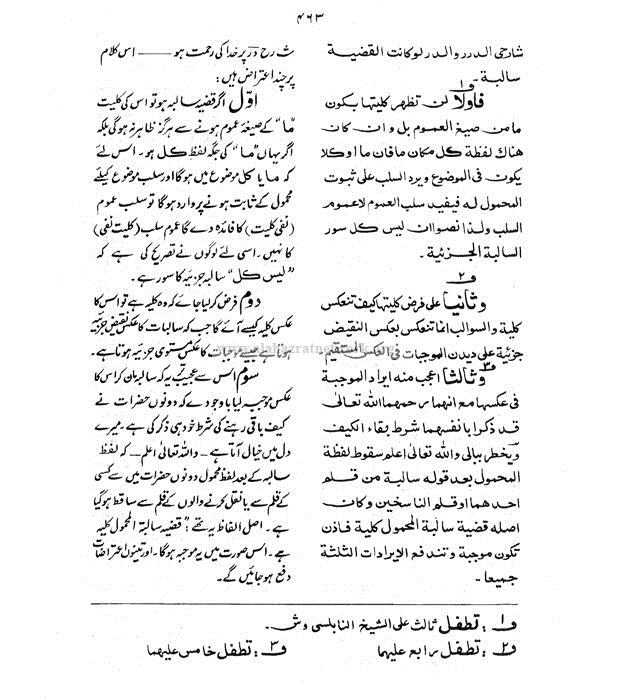 ۴۶۳
شارحی الدرر والدر لوکانت القضیۃ
سالبۃ۔
ف۱
فاولا لن تظھر کلیتھا بکون
ما من صیغ العموم بل و ان کان
ھناك لفظۃ کل مکان ما فان ما او کلا
یکون فی الموضوع و یرد السلب علی ثبوت
المحمول لہ فیفید سلب العموم لاعموم
السلب ولذا نصوا ان لیس کل سور
السالبۃ الجزئیۃ۔
ف۲
و ثانیا علی فرض کلیتھا کیف تنعکس
کلیۃ و السوالب انما تنعکس بعکس النقیض
جزئیۃ علی دیدن الموجبات فی العکس المستقیم
ف۳
و ثالثا اعجب منہ ایراد الموجبۃ
فی عکسھا مع انھما رحمھما اللہ تعالٰی
قد ذکرا بانفسھما شرط بقاء الکیف
و یخطر ببالی واللہ تعالٰی اعلم سقوط لفظۃ
المحمول بعد قولہ سالبۃ من قلم
احدھما او قلم الناسخین و کان
اصلہ قضیۃ سالبۃ المحمول کلیۃ فاذن
تکون موجبۃ و تندفع الایرادات الثلثۃ
جمیعا۔
شارح درر پر خدا کی رحمت ہو —— اس کلام
پر چند اعتراض ہیں:
اول اگر قضیہ سالبہ ہو تو اس کی کلیت
”ما“ کے صیغہ عموم ہونے سے ہرگز ظاہر نہ ہوگی بلکہ
اگر یہاں ”ما“ کی جگہ لفظ کل ہو۔ اس لئے
کہ ما یا کل موضوع میں ہوگا اور سلب موضوع کیلئے
محمول کے ثابت ہونے پر وارد ہوگا تو سلب عموم
(نفی کلیت) کا فائدہ دے گا عموم سلب (کلیت نفی)
کا نہیں۔ اسی لئے لوگوں نے تصریح کی ہے کہ
”لیس کل“ سالبہ جزئیہ کا سور ہے۔
دوم فرض کرلیا جائے کہ وہ کلیہ ہے تو اس کا
عکس کلیہ کیسے آئے گا جب کہ سالبات کا عکس نقیض جزئیہ
ہوتا ہے جیسے موجبات کا عکس مستوی جزئیہ ہوتا ہے۔
سوم اس سے عجیب تر یہ کہ سالبہ مان کر اس کا
عکس موجبہ لیا باوجودے کہ دونوں حضرات نے
کیف باقی رہنے کی شرط خود ہی ذکر کی ہے۔ میرے
دل میں خیال آتا ہے۔ واللہ تعالٰی اعلم۔ کہ لفظ
سالبہ کے بعد لفظ محمول دونوں حضرات میں سے کسی
کے قلم سے یا نقل کرنے والوں کے قلم سے ساقط ہوگیا
ہے۔ اصل الفاظ یہ تھے: ”قضیہ سالبۃ المحمول کلیہ
ہے۔ اس صورت میں یہ موجبہ ہوگا۔ اور تینوں اعتراضات
دفع ہوجائیں گے۔
ف۱: تطفل ثالث علی الشیخ النابلسی و ش۔
ف۲: تطفل رابع علیھما ف۳: تطفل خامس علیھما